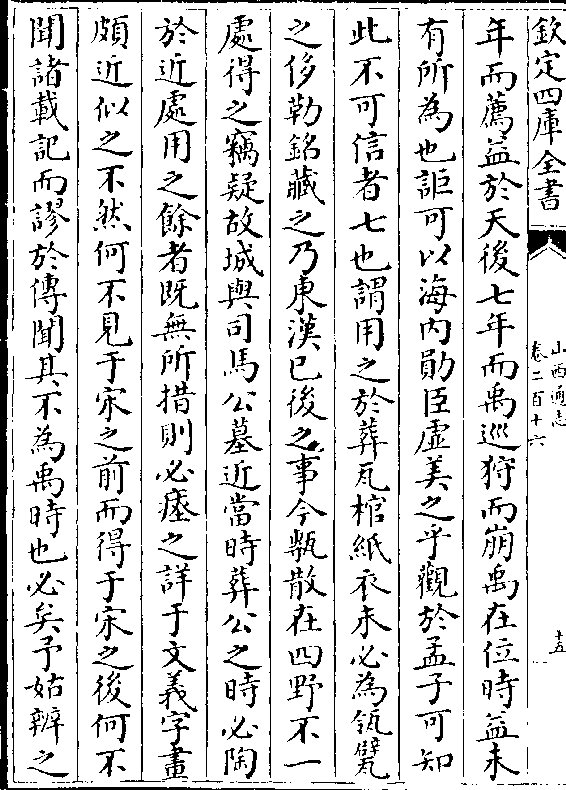 欽定四庫全書
山西通志
卷二百十六
十五
年而薦益於天後七年而禹巡狩而崩禹在位時益未
有所為也詎可以海内勛臣虚美之乎觀於孟子可知
此不可信者七也謂用之於葬瓦棺紙衣未必為瓴甓
之侈勒銘藏之乃東漢已後之事今甎散在四野不一
處得之竊疑故城與司馬公墓近當時葬公之時必陶
於近處用之餘者既無所措則必瘞之詳于文義字畫
頗近似之不然何不見于宋之前而得于宋之後何不
聞諸載記而謬於傳聞其不為禹時也必矣予姑辨之